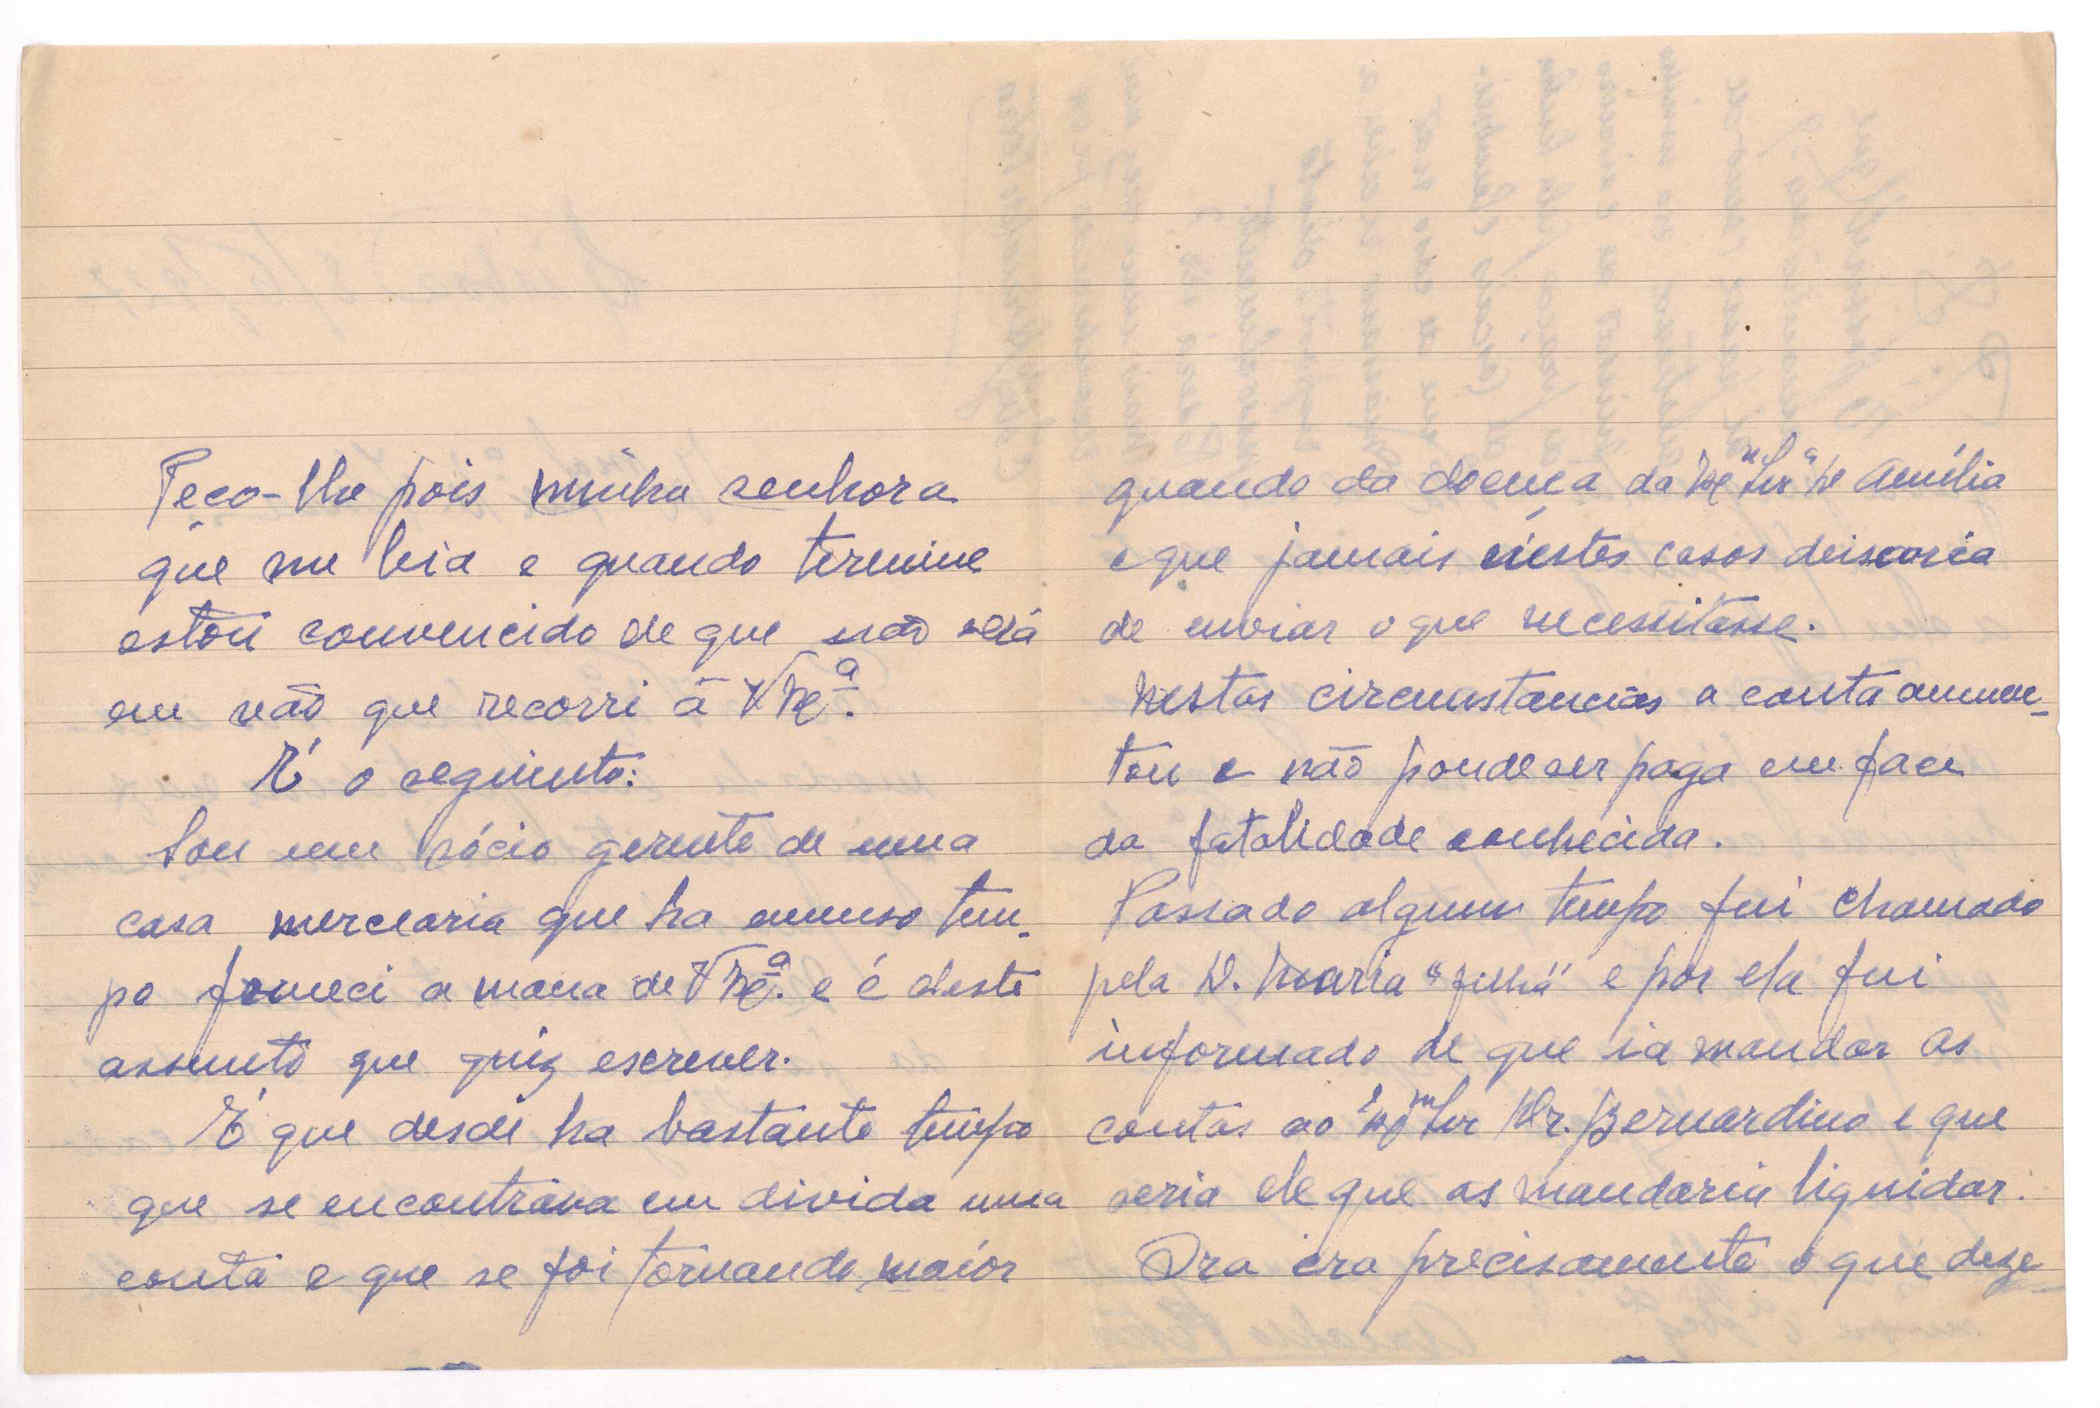 Peço-lhe pois minha senhora
que me leia e quando termine
estou convencido de que não será
em vão que recorri á V Exª.
É o seguinte:
Sou um sócio gerente de uma
casa mercearia que ha imenso tem-
po forneci a mana de V Exª. e é deste
assunto que quiz escrever.
É que desde ha bastante tempo
que se encontrava em divida uma
conta e que se foi tornando maior
quando da doença da Amilia
e que jamais nestes casos deixaria
de enviar o que necessitasse.
Nestas circumstancias a conta aumen-
tou e não poude ser paga em face
da fatalidade conhecida.
Passado algum tempo fui chamado
pela D. Maria "filha" e por ela fui
informado de que ia mandar as
contas ao Exmo Snr Dr. Bernardino e que
seria ele que as mandaria liquidar.
Ora era precisamente o que deze-